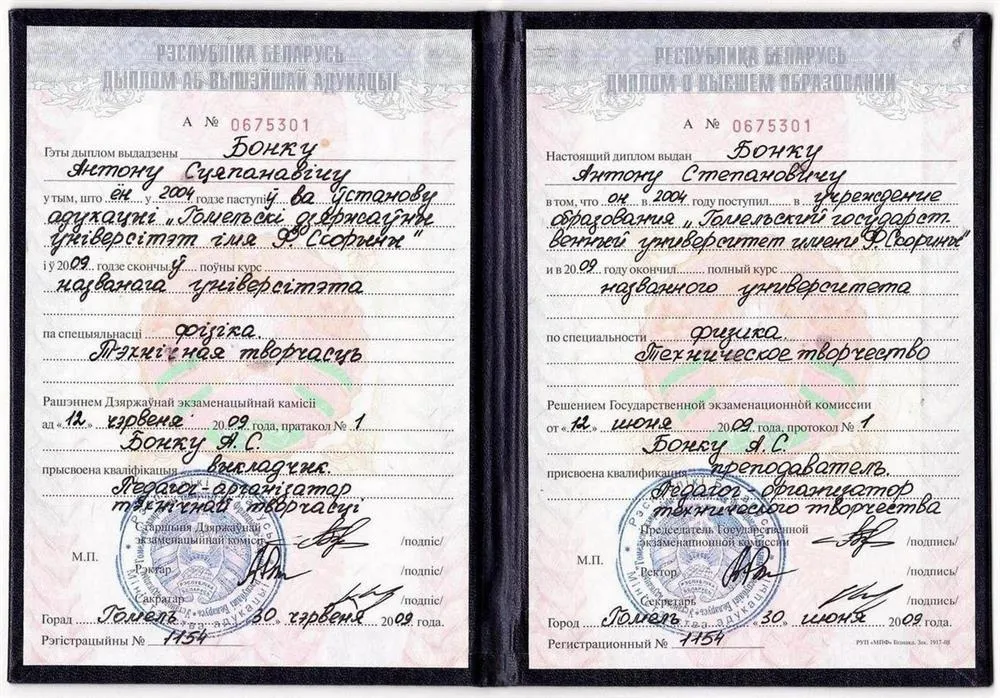 РЭСПУБЛІКА БЕЛАРУСЬ
ДЫПЛОМ АБ ВЫШЭЙШАЙ АДУКАЦЫІ
А № 0675301
Гэты дыплом выдадзены Бонку
Антону Сцяпанавічу
у тым, што ён у 2004 годзе паступіў ва ўстанову
адукацыі „Гомельскі дзяржаўны
ўніверсітэт імя Ф. Скорины"
і ў 2009 годзе скончыў поўны курс
названага ўніверсітэта
па спецыяльнасці фізіка.
Тэхнічная творчасць
Рашэннем Дзяржаўнай экзаменацыйнай камісіі
ад «12» чэрвеня 2009 года, пратакол № 1
Бонку А.С.
прысвоена кваліфікацыя выкладчык.
Педагог-арганізатар
тэхнічнай творчасці
Старшыня Дзяржаўнай
экзаменацыйнай камісіі /подпіс/
М.П. Рэктар /подпіс/
Сакратар /подпіс/
Горад Гомель 30 чэрвеня 2009 года.
Рэгістрацыйны № 1154
РЕСПУБЛИКА БЕЛАРУСЬ
ДИПЛОМ О ВЫСШЕМ ОБРАЗОВАНИИ
А № 0675301
Настоящий диплом выдан Бонку
Антону Степановичу
в том, что он в 2004 году поступил в учреждение
образования „Гомельский государст
венный университет имени Ф. Скорины"
и в 2009 году окончил полный курс
названного университета
по специальности физика.
Техническое творчество
Решением Государственной экзаменационной комиссии
от «12» июня 2009 года, протокол № 1
Бонку А.С.
присвоена квалификация преподаватель.
Педагог - организатор
технического творчества
Председатель Государственной
экзаменационной комиссии /подпись/
М.П. Ректор /подпись/
Секретарь /подпись/
Город Гомель 30 июня 2009 года.
Регистрационный № 1154
РУП «МПФ» Гознака. Зак. 1917-08